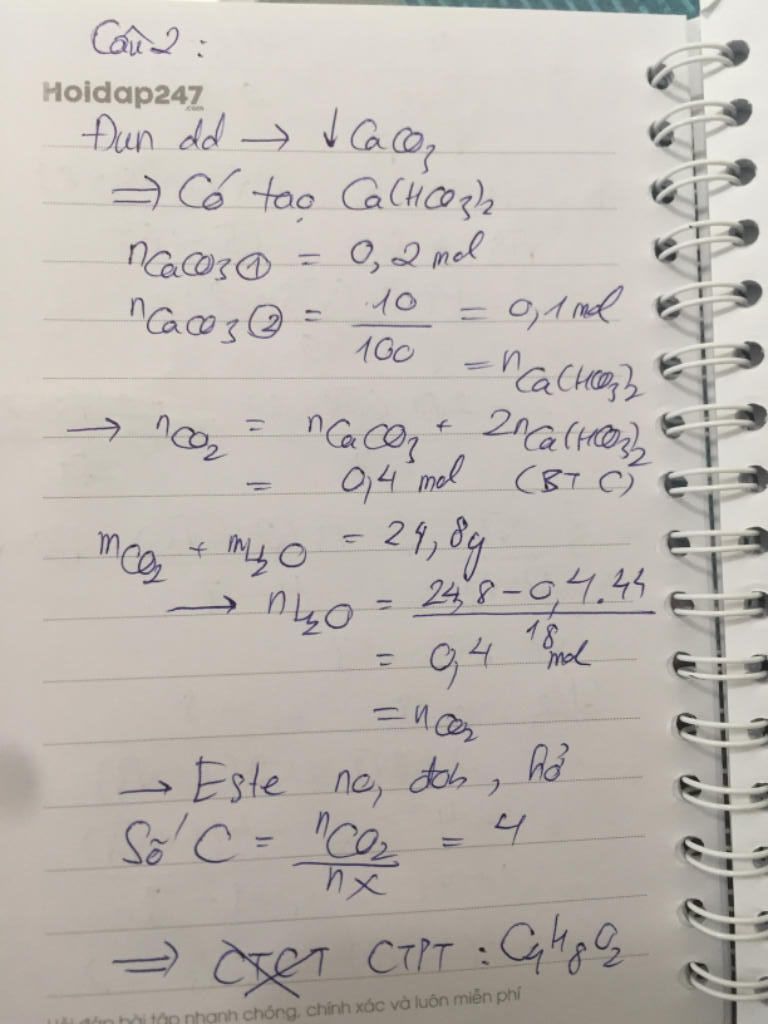 Câu 2 :
Hoidap247
.com
Đun dd → ↓ CaCO3
⇒ Có tạo Ca(HCO3)2
nCaCO3 ① = 0,2 mol
nCaCO3 ② = 10/100 = 0,1 mol
= nCa(HCO3)2
→ nCO2 = nCaCO3 + 2nCa(HCO3)2
= 0,4 mol (BT C)
mCO2 + mH2O = 24,8g
→ nH2O = (24,8 - 0,4.44)/18
= 0,4 mol
= nCO2
→ Este no, đơn, hở
Số C = nCO2/nX = 4
⇒ CTCT CTPT : C4H8O2
Hỏi đáp bài tập nhanh chóng, chính xác và luôn miễn phí